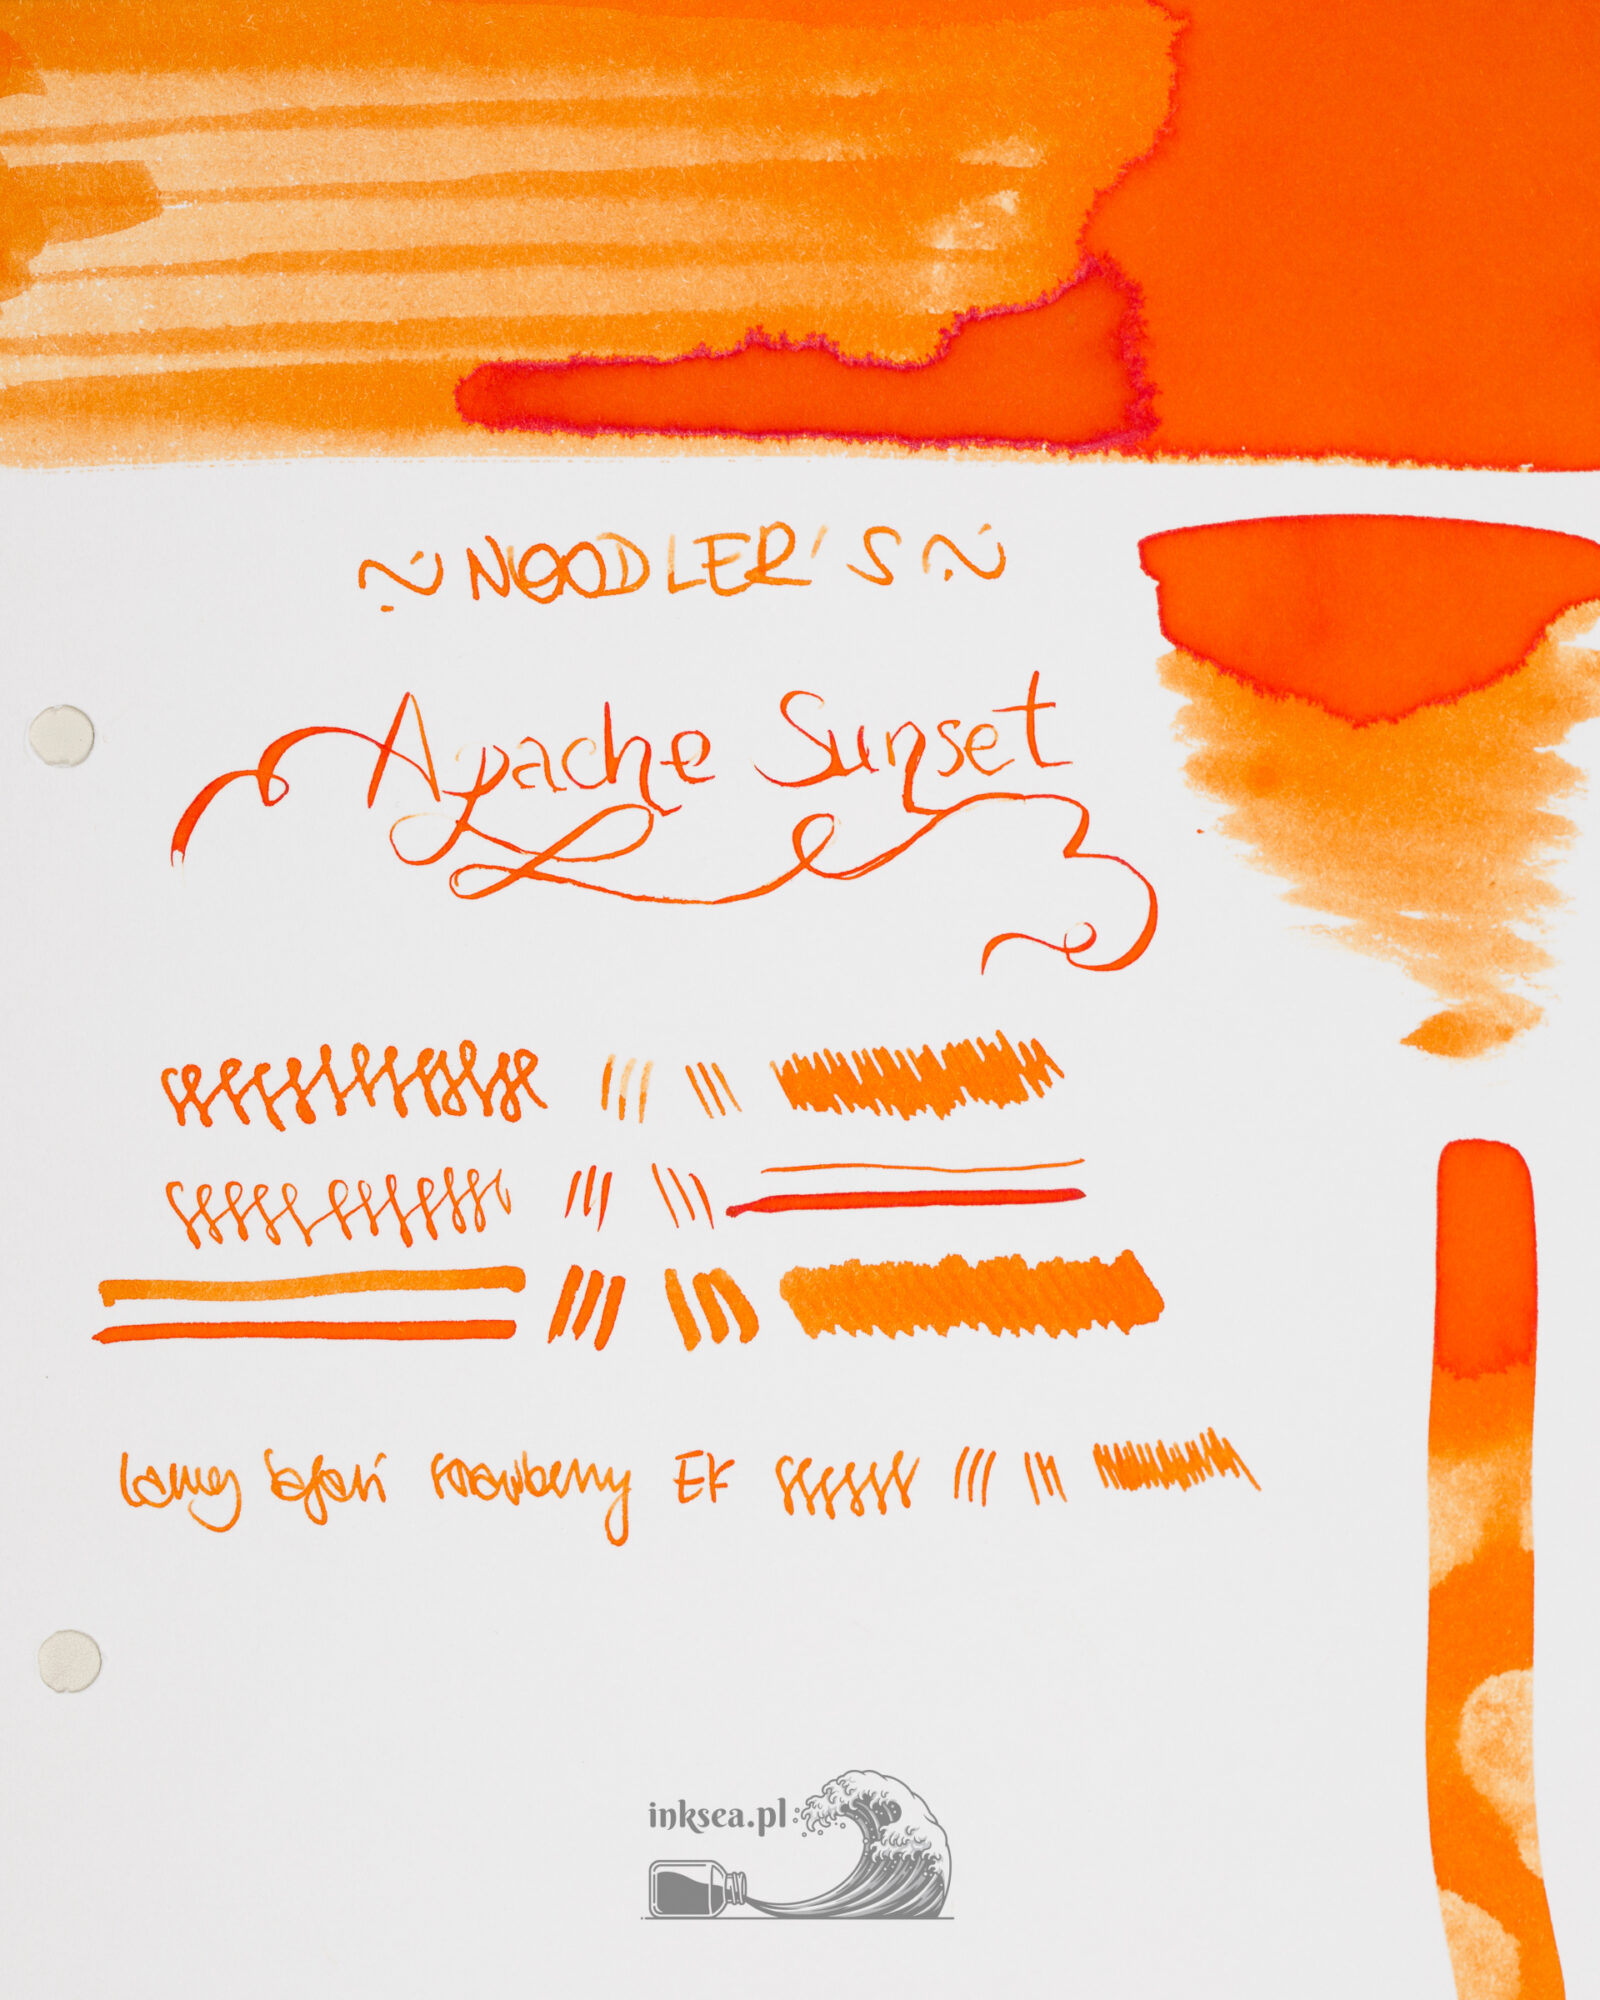 ~ NOODLER'S ~
Apache Sunset
Lamy Safari strawberry EF
inksea.pl